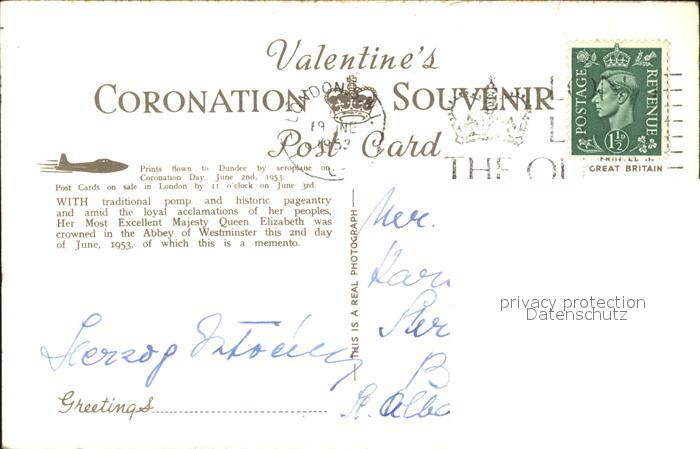 Valentine's
CORONATION SOUVENIR
Post Card
LONDON
19 NE
1953
POSTAGE
REVENUE
1½D
THE QU
GREAT BRITAIN
Prints flown to Dundee by aeroplane on
Coronation Day, June 2nd, 1953.
Post Cards on sale in London by 11 o'clock on June 3rd.
WITH traditional pomp and historic pageantry
and amid the loyal acclamations of her peoples,
Her Most Excellent Majesty Queen Elizabeth was
crowned in the Abbey of Westminster this 2nd day
of June, 1953, of which this is a memento.
THIS IS A REAL PHOTOGRAPH
privacy protection
Datenschutz
Herzog
Greetings
St. Alba